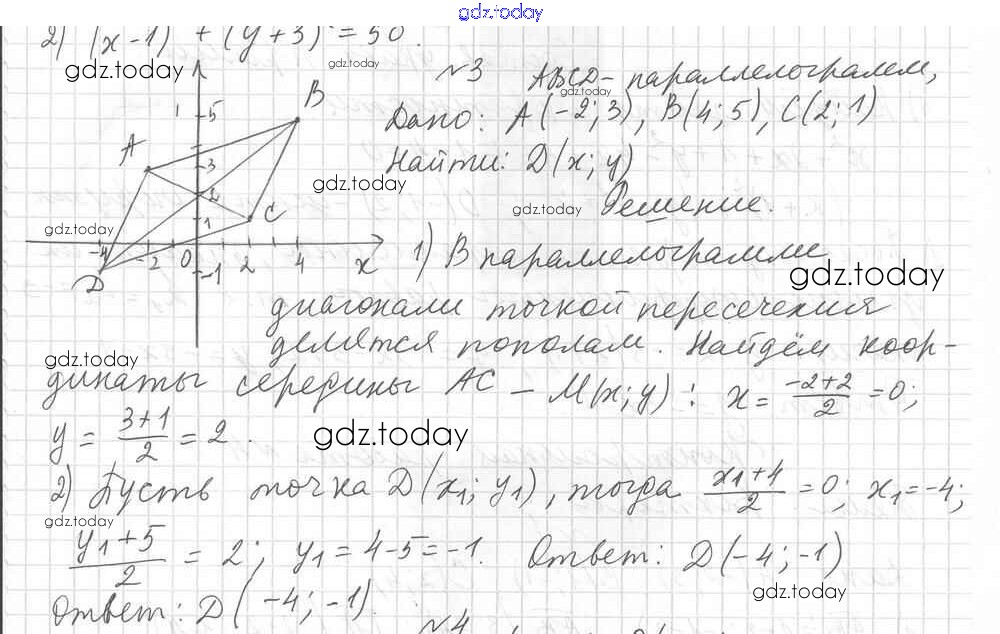 gdz.today
2) (x-1) + (y+3) = 50.
gdz.today gdz.today
№3 ABCD - параллелограмм,
gdz.today
Дано: A(-2; 3), B(4; 5), C(2; 1)
Найти: D(x; y)
gdz.today gdz.today
Решение.
1 5
B
A
3
2
1 C
gdz.today
-4 -2 0 2 4 x
D -1
1) В параллелограмме
gdz.today
диагонали точкой пересечения
делятся пополам. Найдём коор-
gdz.today
динаты середины AC - M(x; y): x = \frac{-2+2}{2} = 0;
y = \frac{3+1}{2} = 2.
gdz.today
2) Пусть точка D(x1; y1), тогда \frac{x1+4}{2} = 0; x1 = -4;
gdz.today
\frac{y1+5}{2} = 2; y1 = 4-5 = -1. Ответ: D(-4; -1)
gdz.today
Ответ: D(-4; -1).
№4